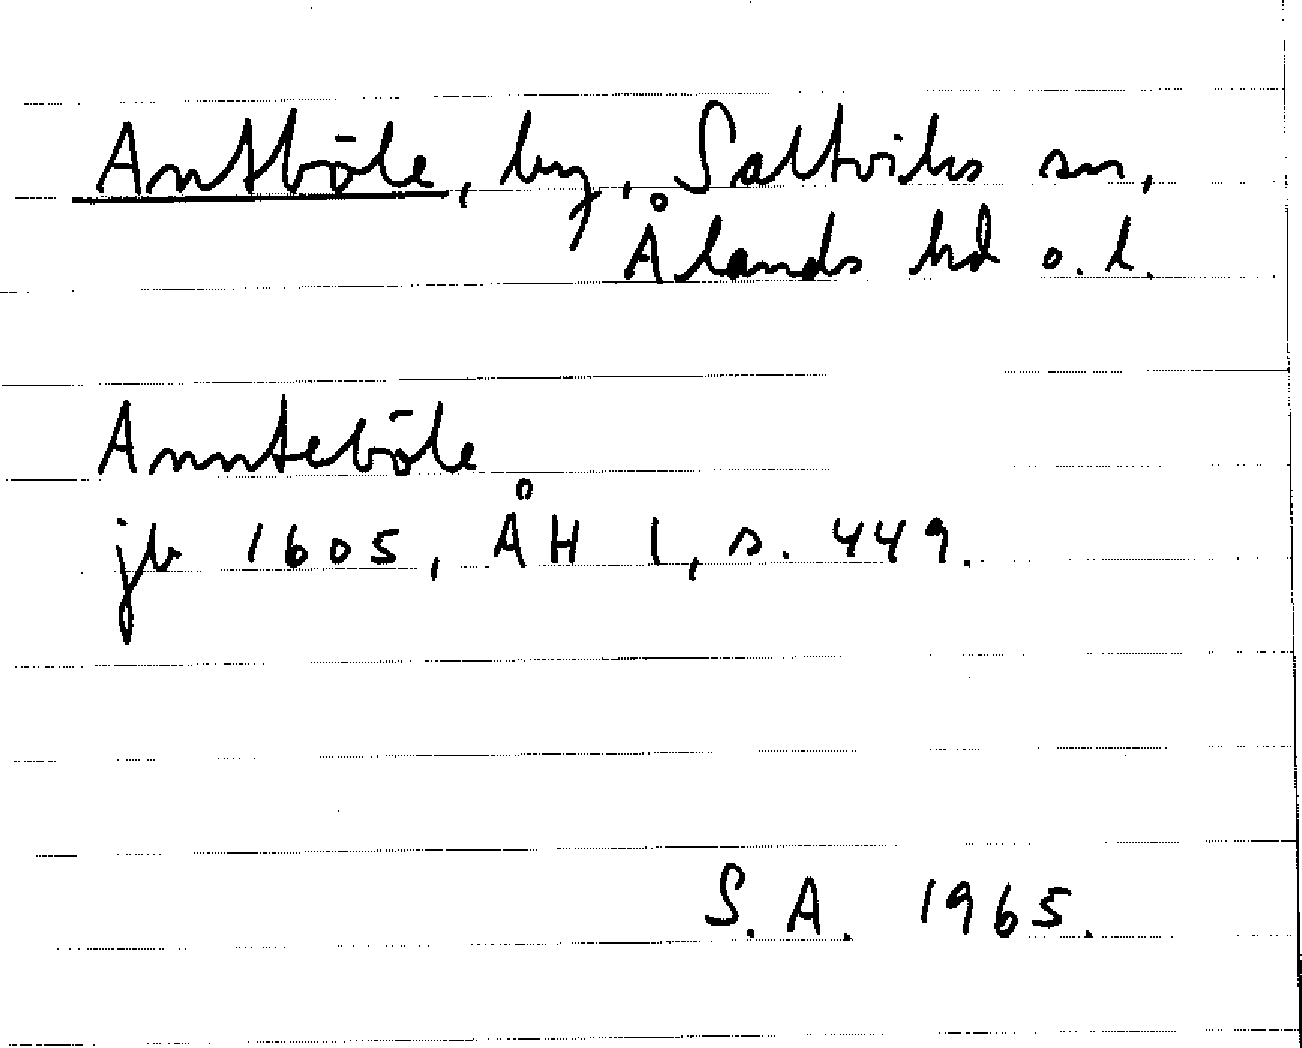 Antböle, by, Saltviks sn,
Ålands hd o. l.
Annteböle
jb 1605, ÅH I, s. 449.
S. A. 1965.